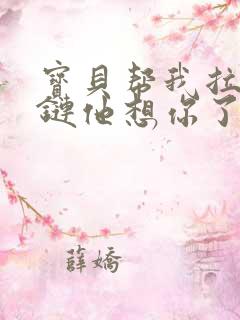 寶貝帮我拉
鏈他想你了
薛嬌